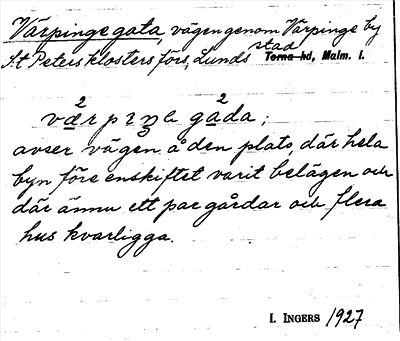 Värpinge gata, vägen genom Värpinge by
St Peters Klosters förs, Lunds stad Torna hd, Malm. l.
värpiŋa gada;
avser vägen å den plats, där hela
byn före enskiftet varit belägen och
där ännu ett par gårdar och flera
hus kvarligga.
I. INGERS 1927